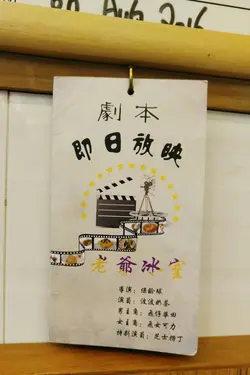 Aug 2016
劇本
即日放映
老爺冰室
導演：保齡球
演員：波波奶茶
男主角：飛得華田
女主角：飛女可力
特別演員：芝士撈丁